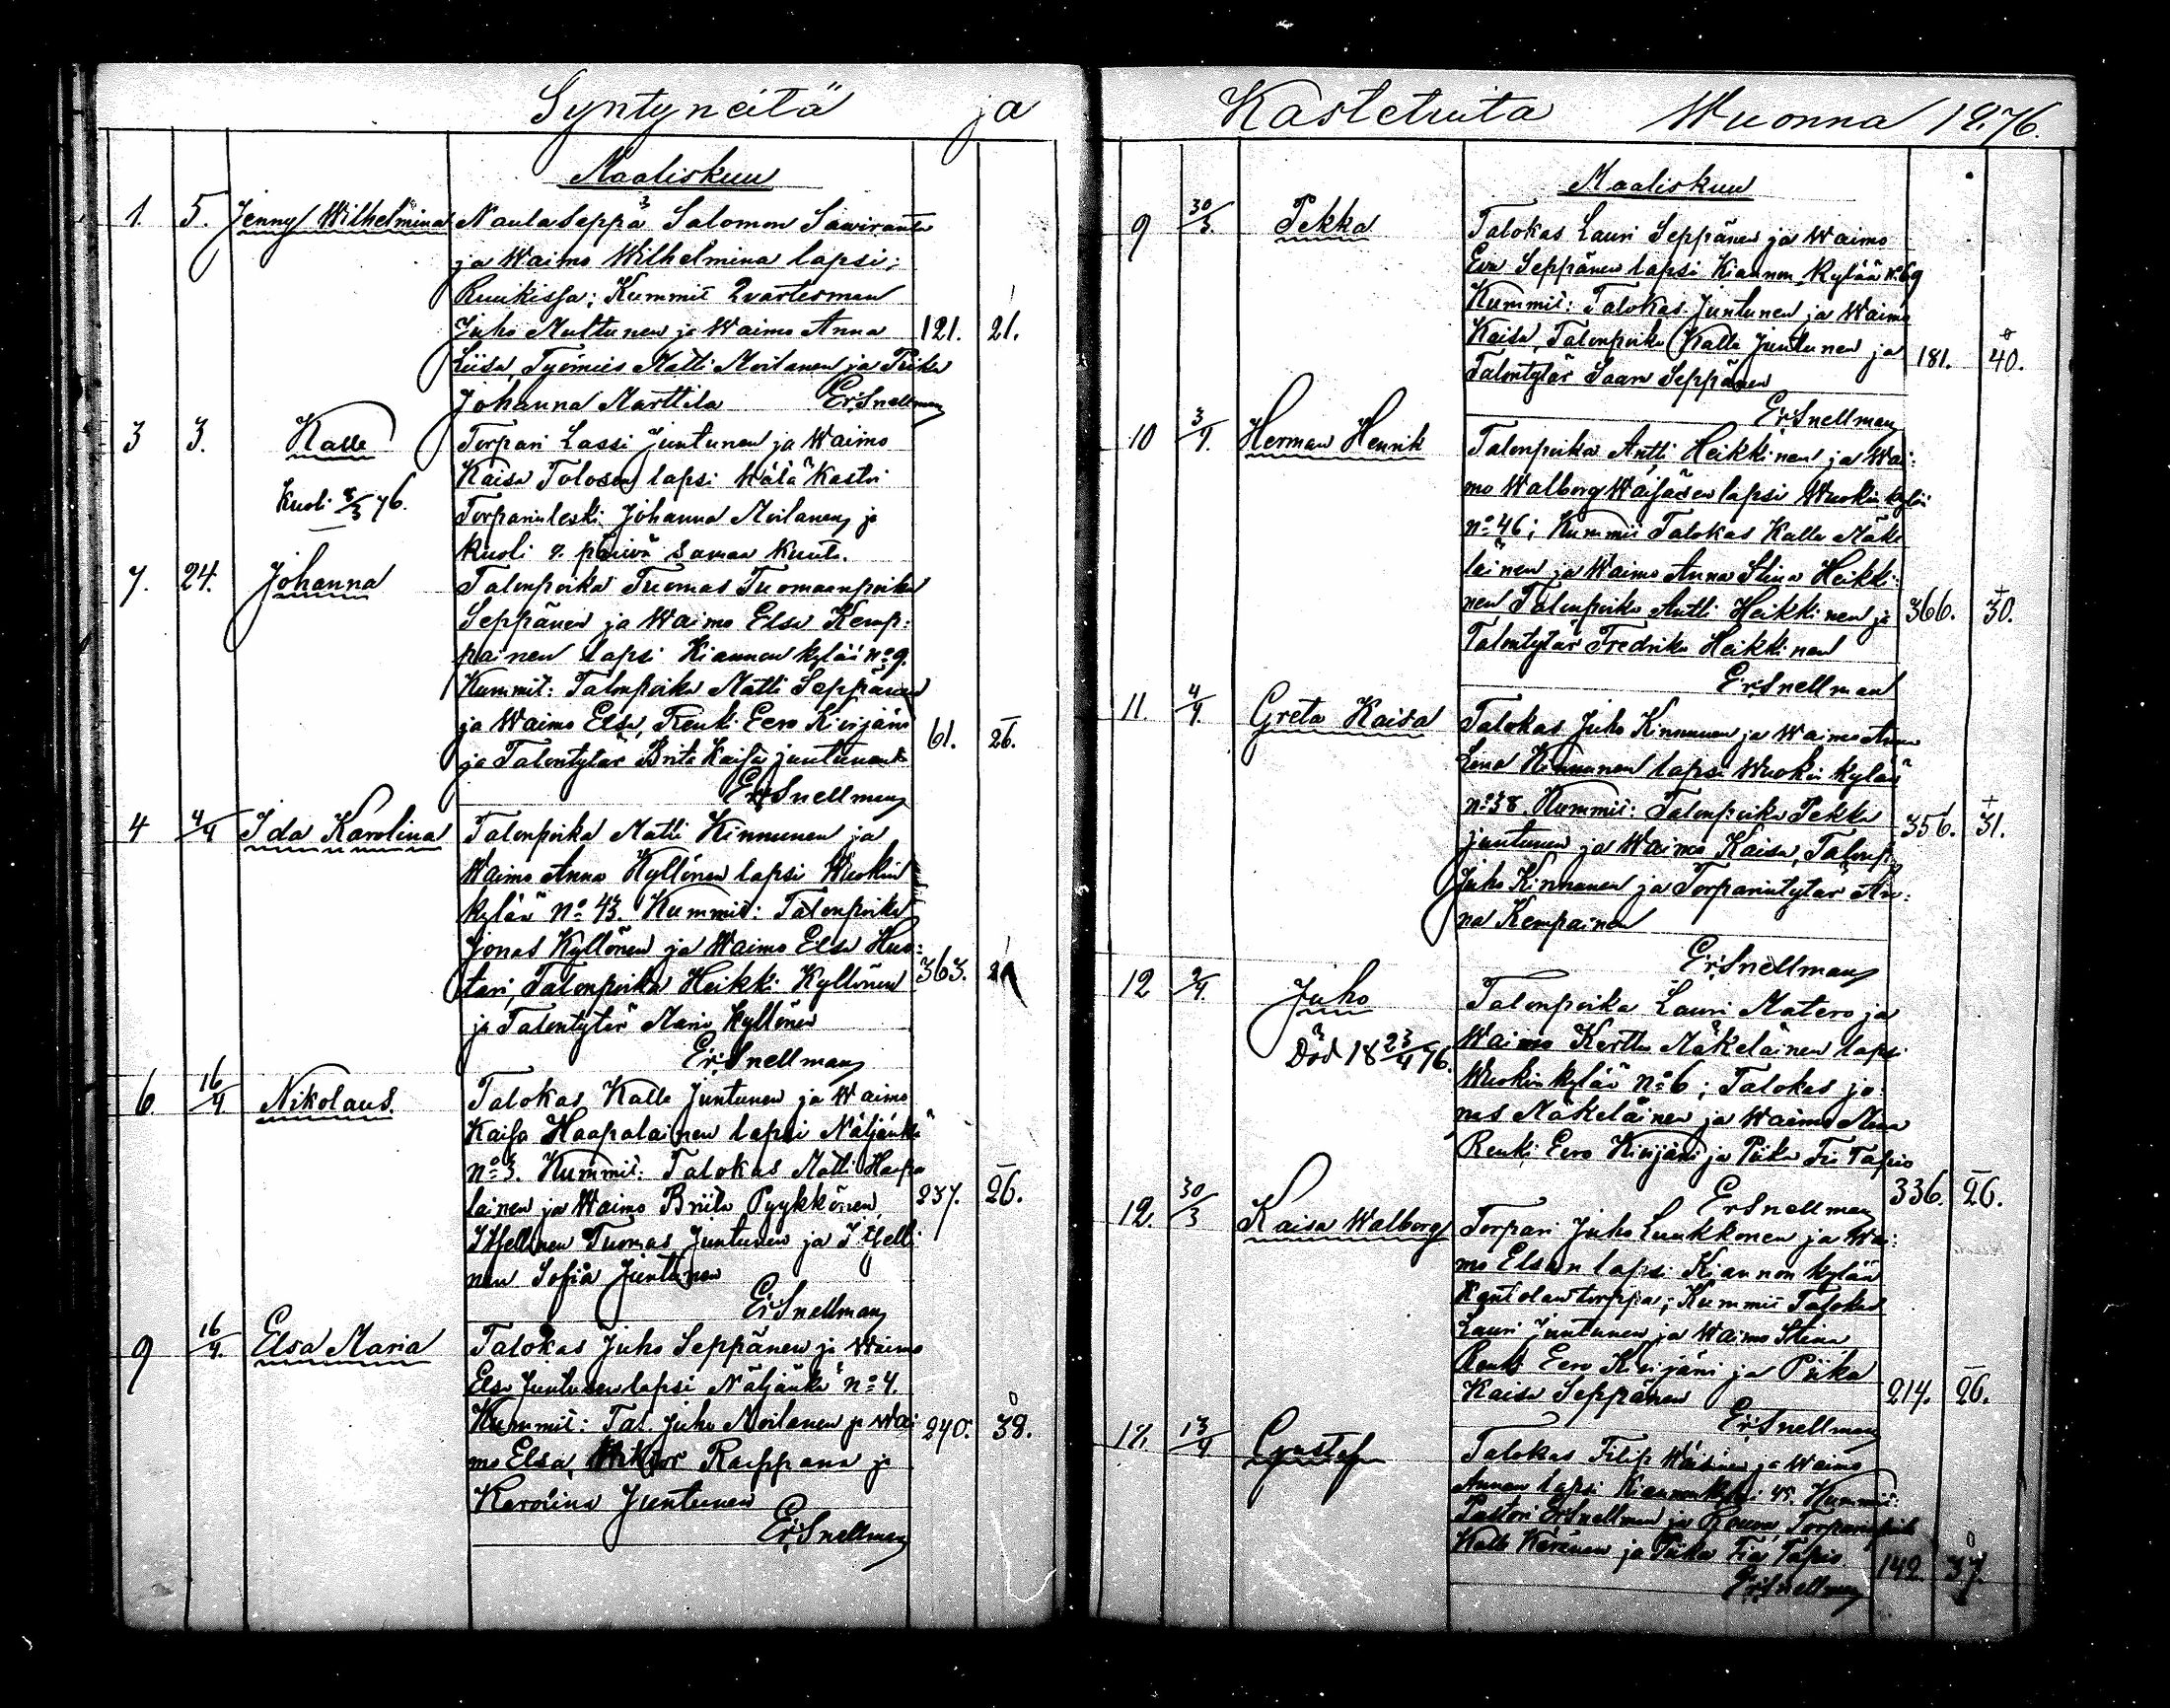 Syntyneitä ja
Maaliskuu
1 5. Jenny Wilhelmina Naulaseppä Salomon Sawiranta
ja Waimo Wilhelmina lapsi;
Ruukissa; Kummit Qvartesman
Juho Multunen ja Waimo Anna 121. 21.
Liisa, Työmies Matti Moilanen ja Piika
Johanna Marttila Er. Snellman
3 3. Kalle Torpari Lassi Juntunen ja Waimo
Kaisa Tolosen lapsi Hätä Kastoi
Kuoli 8/3 76. Torparinleski Johanna Moilanen, ja
kuoli 8. päivä saman kuuta.
7. 24. Johanna Talonpoika Tuomas Tuomaanpoika
Seppänen ja Waimo Elsa Kemp:
painen lapsi Kiannon kylää No 9.
Kummit: Talonpoika Matti Seppänen
ja Waimo Elsa, Renki Eero Kirjäni 61. 26.
ja Talontytär Brita Kaisa Juntunen
Er. Snellman
4 4/4 Ida Karolina Talonpoika Matti Kinnunen ja
Waimo Anna Kyllönen lapsi Wuokin
kylää No 43. Kummit: Talonpoika
Jonas Kyllönen ja Waimo Elsa Huo:
tari, Talonpoika Heikki Kyllönen 363. 21
ja Talontytär Maria Kyllönen
Er. Snellman
6. 16/4. Nikolaus. Talokas Kalle Juntunen ja Waimo
Kaisa Haapalainen lapsi Näljänkä
No 3. Kummit: Talokas Matti Haapa
lainen ja Waimo Briita Pyykkönen, 237. 26.
Itsellinen Tuomas Juntunen ja Itselli
nen Sofia Juntunen
Er. Snellman
9 16/4. Elsa Maria Talokas Juho Seppänen ja Waimo
Elsa Juntunen lapsi Näljänkä No 4.
Kummit: Tal. Juho Moilanen ja Wai 240. 38.
mo Elsa, Wiktor Rappana ja
Karolina Juntunen
Er. Snellman
Kastetuita Wuonna 1876.
Maaliskuu
9 30/3. Pekka Talokas Lauri Seppänen ja Waimo
Eva Seppänen lapsi Kiannon kylää No 69
Kummit: Talokas Juntunen ja Waimo
Kaisa, Talonpoika Kalle Juntunen ja 181. 40.
Talontytär Saara Seppänen
Er. Snellman
10 3/4. Herman Henrik Talonpoika Antti Heikkinen ja Wai:
mo Walborg Wäisäsen lapsi Wuokin kylää
No 46; Kummit Talokas Kalle Mäke
läinen ja Waimo Anna Stina Heikki:
nen Talonpoika Antti Heikkinen ja 366. 30.
Talontytär Fredrika Heikkinen
Er. Snellman
11. 4/4. Greta Kaisa Talokas Juho Kinnunen ja Waimo Anna
Lena Kinnunen lapsi Wuokin kylää
No 38. Kummit: Talonpoika Pekka 356. 31.
Juntunen ja Waimo Kaisa, Talonp
Juho Kinnunen ja Torparintytär An:
na Kempainen
Er. Snellman
12 2/4. Juho Talonpoika Lauri Matero ja
Död 18 23/4 76. Waimo Kerttu Mäkeläinen lapsi
Wuokin kylää No 6; Talokas Jo:
nas Mäkeläinen ja Waimo
Renki Eero Kirjäni ja Piika Fia Tapio
Er. Snellman 336. 26.
12. 30/3 Kaisa Walborg Torpari Juho Luukkonen ja Wai:
mo Elsan lapsi Kiannon kylää
Kantolan torppa; Kummit Talokas
Lauri Juntunen ja Waimo Stina
Renki Eero Kirjäni ja Piika
Kaisa Seppänen 214. 26.
Er. Snellman
18. 13/4 Gustaf Talokas Filip Wäisänen ja Waimo
Annan lapsi Kiannon kylää 45. Kummit:
Pastori Er. Snellman ja Rouva, Torparinpoika
Kalle Keränen ja Piika Fia Tapio. 142. 37.
Er. Snellman